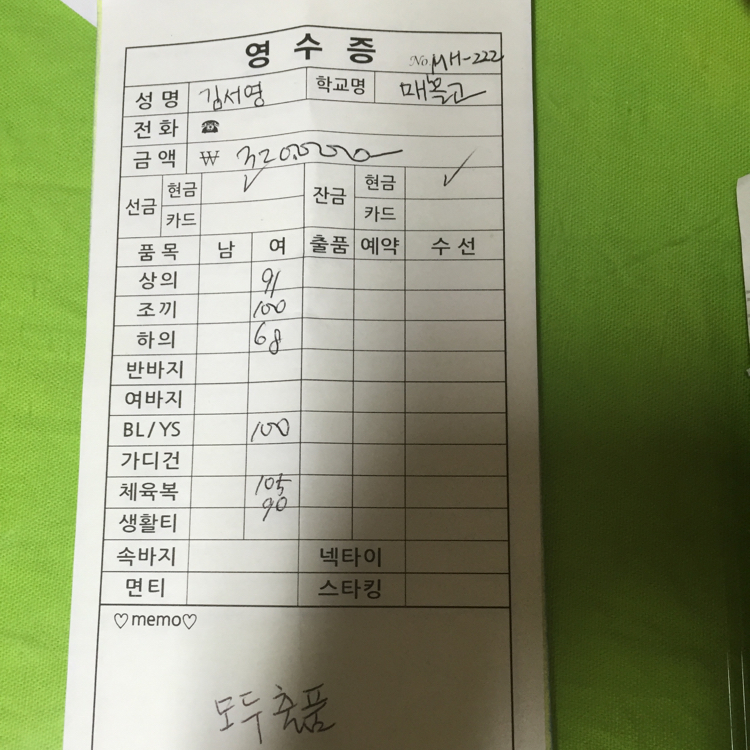 영수증 No. MH-222
성명 김서영 학교명 매홀고
전화 ☎
금액 ₩ 320,000
선금 현금 ✓ 잔금 현금 ✓
카드 카드
품목 남 여 출품 예약 수선
상의 91
조끼 100
하의 68
반바지
여바지
BL/YS 100
가디건
체육복 105
90
생활티
속바지 넥타이
면티 스타킹
♡memo♡
모두 출품